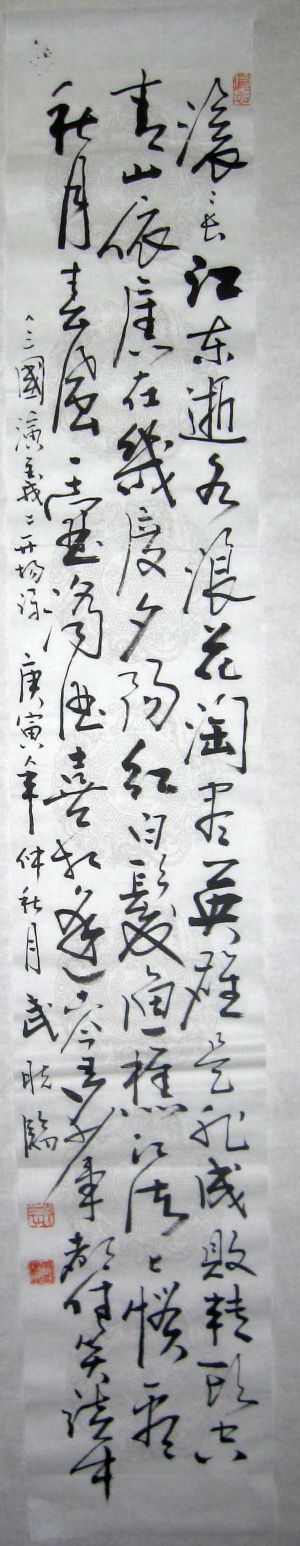 滚滚长江东逝水浪花淘尽英雄是非成败转头空
青山依旧在几度夕阳红白髮渔樵江渚上惯看
秋月春风一壶浊酒喜相逢古今多少事都付笑谈中
三國演義开场词 庚寅年仲秋月武 臨